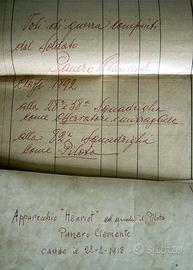 Voli di guerra compiuti
dal Soldato
Panero Clemente
Classe 1892
alla 28ª e 38ª Squadriglia
come Osservatore e mitragliere
alla 82ª Squadriglia
come Pilota
Apparecchio "Henriot" ed annesso il Pilota
Panero Clemente
cadde il 22-2-1918
Subito.it